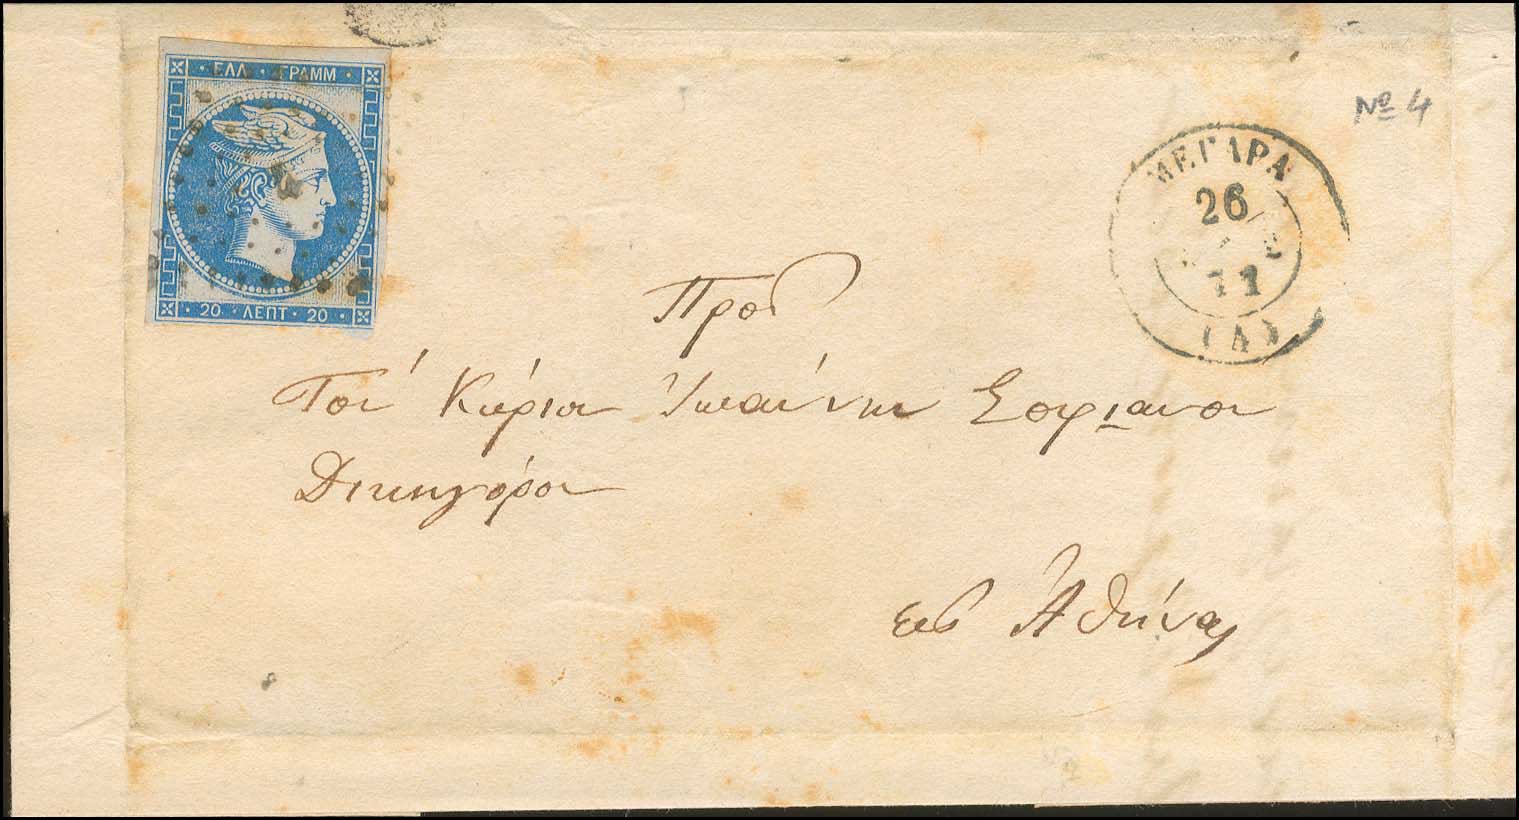 ΕΛΛ · ΓΡΑΜΜ
20 · ΛΕΠΤ · 20
Nº 4
ΜΕΓΑΡΑ
26
71
(Α)
Προς
Τον Κύριον Ἰωάννην Σοφιανον
Δικηγόρον
εις Ἀθήνας